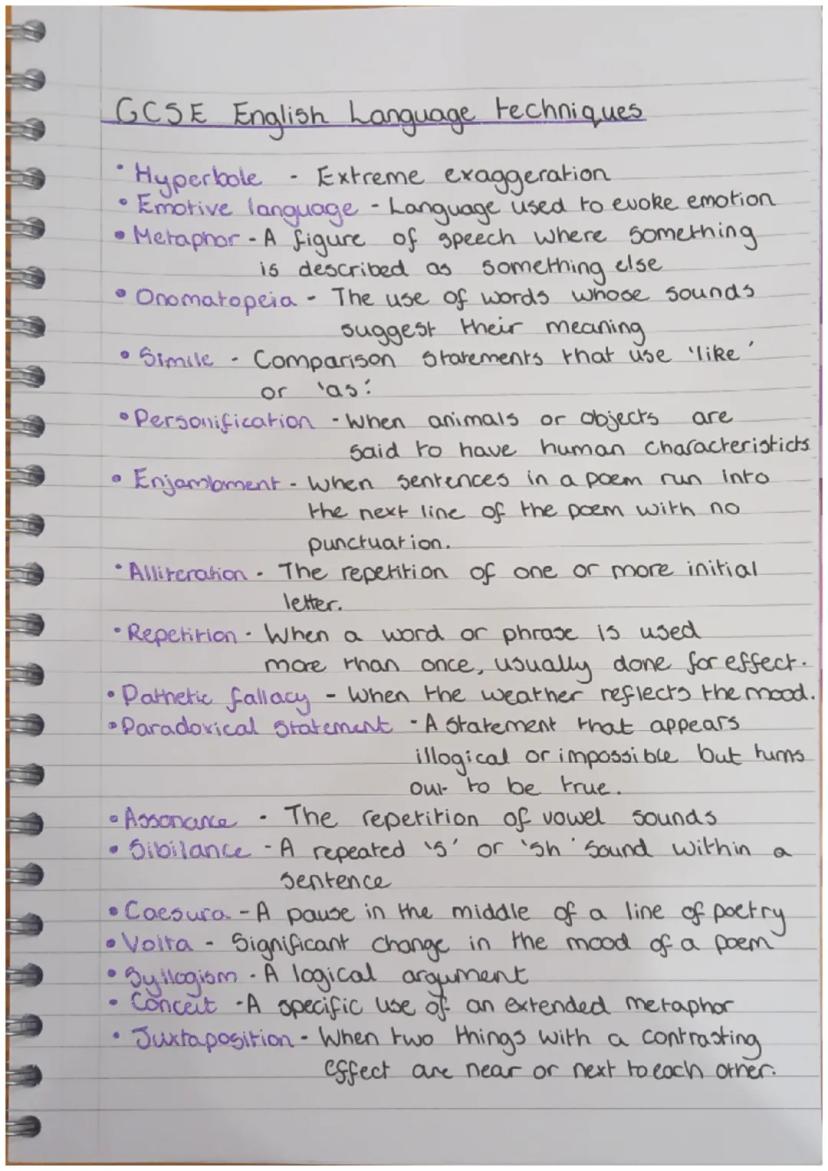 GCSE English Language techniques
• Hyperbole - Extreme exaggeration
• Emotive language - Language used to evoke emotion
• Metaphor - A figure of speech where something
is described as something else
• Onomatopeia - The use of words whose sounds
suggest their meaning
• Simile - Comparison statements that use 'like'
or 'as'.
• Personification - When animals or objects are
said to have human characteristicts
• Enjambment - When sentences in a poem run into
the next line of the poem with no
punctuation.
• Alliteration - The repetition of one or more initial
letter.
• Repetition - When a word or phrase is used
more than once, usually done for effect.
• Pathetic fallacy - When the weather reflects the mood.
• Paradoxical statement - A statement that appears
illogical or impossible but turns
out to be true.
• Assonance - The repetition of vowel sounds
• Sibilance - A repeated 's' or 'sh' sound within a
sentence
• Caesura - A pause in the middle of a line of poetry
• Volta - Significant change in the mood of a poem
• Syllogism - A logical argument
• Conceit - A specific use of an extended metaphor
• Juxtaposition - When two things with a contrasting
effect are near or next to each other.